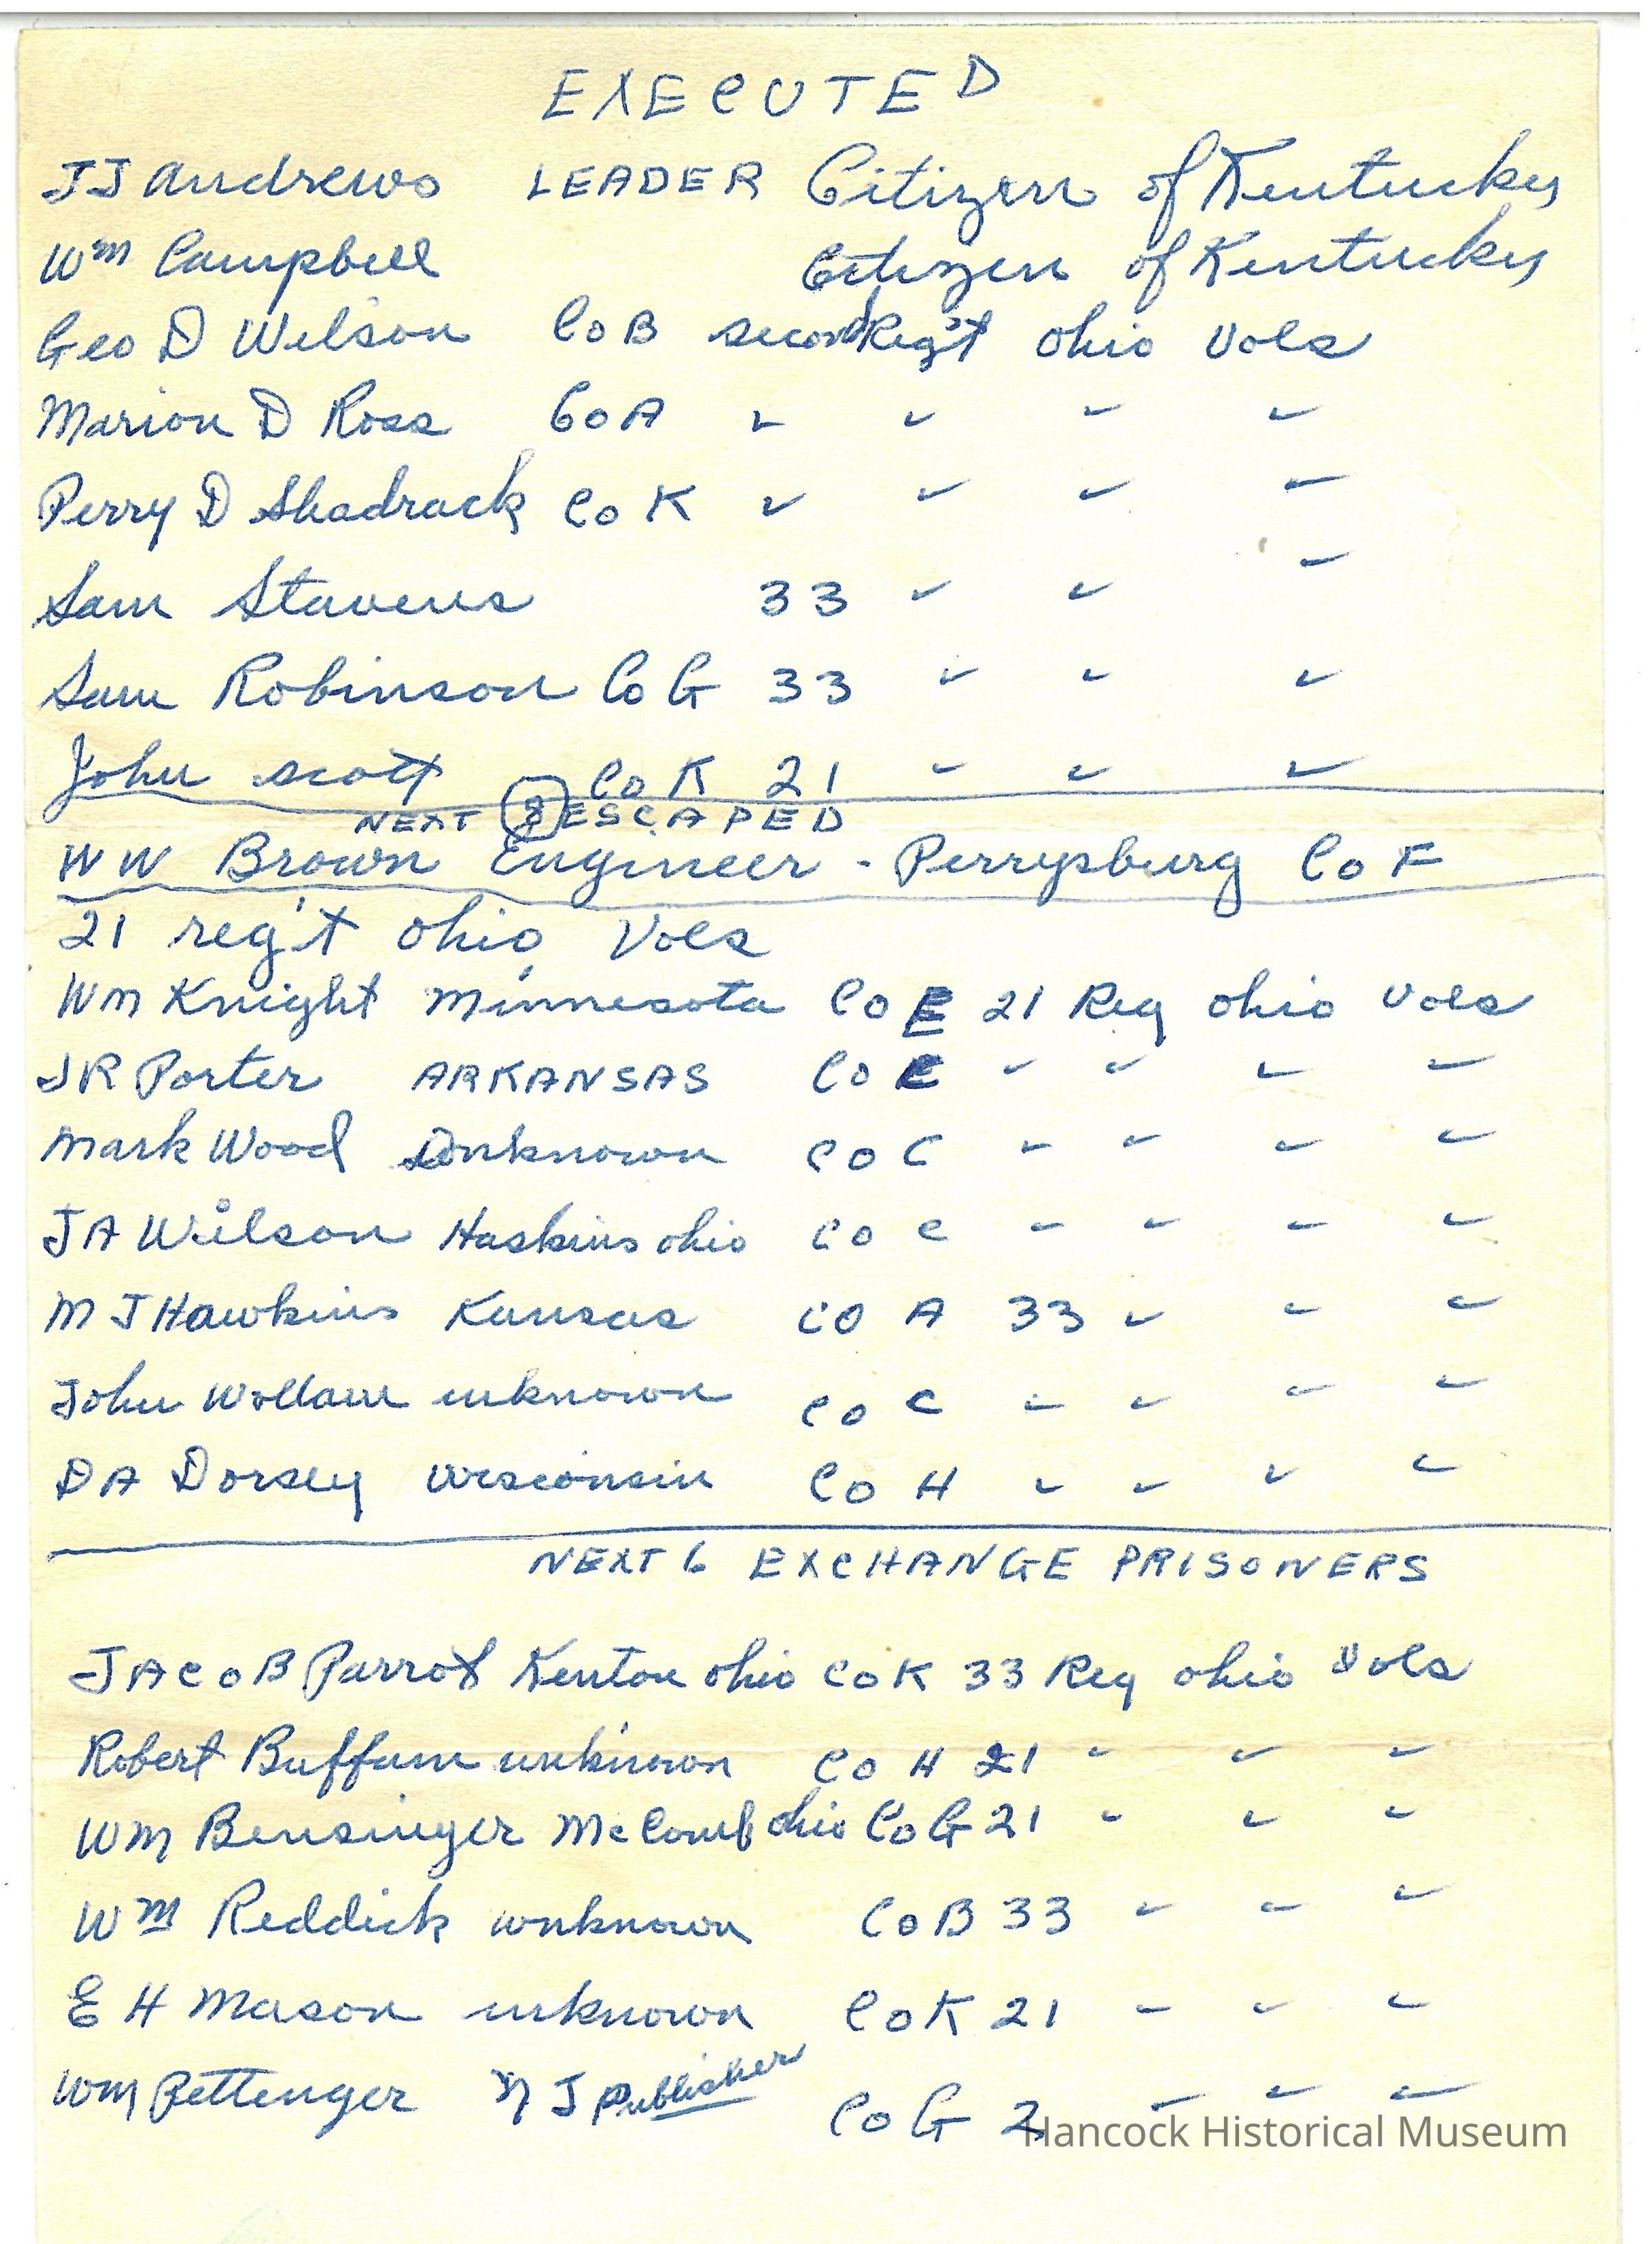 EXECUTED
JJ Andrews LEADER Citizen of Kentucky
Wm Campbell Citizen of Kentucky
Geo D Wilson Co B second Reg't Ohio Vols
Marion D Ross Co A " " " "
Perry D Shadrack Co K " " " "
Sam Stavens 33 " " "
Sam Robinson Co G 33 " " "
John Scott Co K 21 " " "
NEXT 8 ESCAPED
W W Brown Engineer - Perrysburg Co F
21 reg't Ohio Vols
Wm Knight Minnesota Co E 21 Reg Ohio Vols
JR Porter ARKANSAS Co E " " " "
Mark Wood Unknown Co C " " " "
J A Wilson Haskins Ohio Co C " " " "
M J Hawkins Kansas Co A 33 " " "
John Wollam unknown Co C " " " "
D A Dorsey Wisconsin Co H " " " "
NEXT 6 EXCHANGE PRISONERS
JACOB Parrot Kenton Ohio Co K 33 Reg Ohio Vols
Robert Buffum unknown Co H 21 " " "
Wm Bensinger McComb Ohio Co G 21 " " "
Wm Reddick unknown Co B 33 " " "
E H Mason unknown Co K 21 " " "
Wm Pettenger N J Publisher Co G 2 " " "
Hancock Historical Museum